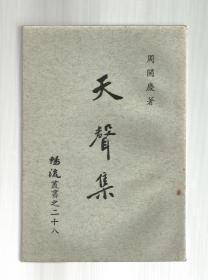 周開慶著
天聲集
暢流叢書之二十八